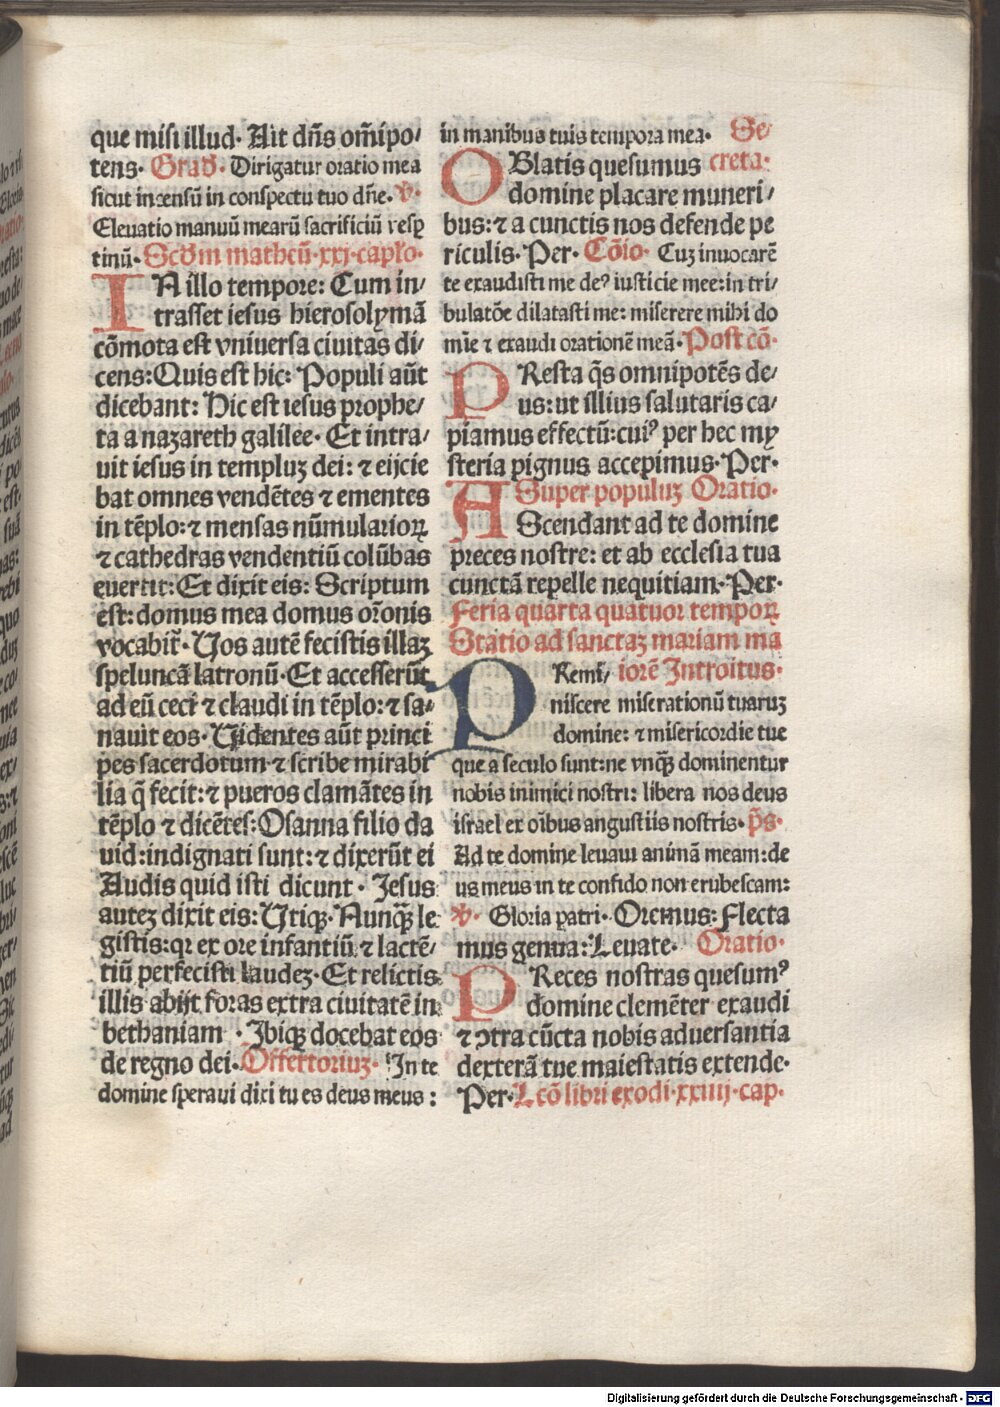 que misi illud· Ait dñs om̃ipo/
tens· Grad̃· Dirigatur oratio mea
sicut incensũ in conspectu tuo dñe· ꝟ·
Eleuatio manuũ mearũ sacrificiũ vesp
tinũ· Scd̃m matheũ·xxj·capl̃o·
IN illo tempore: Cum in/
trasset iesus hierosolymã
cõmota est vniuersa ciuitas di/
cens: Quis est hic: Populi aũt
dicebant: Hic est iesus prophe/
ta a nazareth galilee· Et intra/
uit iesus in templuz dei: ⁊ eijcie
bat omnes vendẽtes ⁊ ementes
in tẽplo: ⁊ mensas nũmularioꝝ
⁊ cathedras vendentiũ colũbas
euertit: Et dixit eis: Scriptum
est: domus mea domus or̃onis
vocabit̃· Vos autẽ fecistis illaz
speluncã latronũ· Et accesserũt
ad eũ ceci ⁊ claudi in tẽplo: ⁊ sa/
nauit eos· Videntes aũt princi
pes sacerdotum ⁊ scribe mirabi
lia q̃ fecit: ⁊ pueros clamãtes in
tẽplo ⁊ dicẽtes: Osanna filio da
uid: indignati sunt: ⁊ dixerũt ei
Audis quid isti dicunt· Jesus
autez dixit eis: Vtiqꝫ· Nunqꝫ̃ le
gistis: qꝛ ex ore infantiũ ⁊ lactẽ/
tiũ perfecisti laudez· Et relictis
illis abijt foras extra ciuitatẽ in
bethaniam· Ibiqꝫ docebat eos
de regno dei· Offertoriuz· In te
domine speraui dixi tu es deus meus:
in manibus tuis tempora mea· Se/
OBlatis quesumus creta·
domine placare muneri/
bus: ⁊ a cunctis nos defende pe
riculis· Per· Cõio· Cuz inuocarẽ
te exaudisti me deꝰ iusticie mee: in tri/
bulatõe dilatasti me: miserere mihi do
mĩe ⁊ exaudi orationẽ meã· Post cõ·
PResta q̃s omnipotẽs de/
us: ut illius salutaris ca/
piamus effectũ: cuiꝰ per hec my
steria pignus accepimus· Per·
Super populuz Oratio·
AScendant ad te domine
preces nostre: et ab ecclesia tua
cunctã repelle nequitiam· Per·
Feria quarta quatuor tempoꝝ
Statio ad sanctaz mariam ma
Remi/ iorẽ Introitus·
P niscere miserationũ tuaruz
domine: ⁊ misericordie tue
que a seculo sunt: ne vnqꝫ̃ dominentur
nobis inimici nostri: libera nos deus
israel ex oĩbus angustiis nostris· p̃s·
Ad te domine leuaui animã meam: de
us meus in te confido non erubescam:
ꝟ· Gloria patri· Oremus: Flecta
mus genua: Leuate· Oratio·
PReces nostras quesumꝰ
domine clemẽter exaudi
⁊ ꝯtra cũcta nobis aduersantia
dexterã tue maiestatis extende·
Per· Lcõ libri exodi·xxiiij·cap·
Digitalisierung gefördert durch die Deutsche Forschungsgemeinschaft - DFG